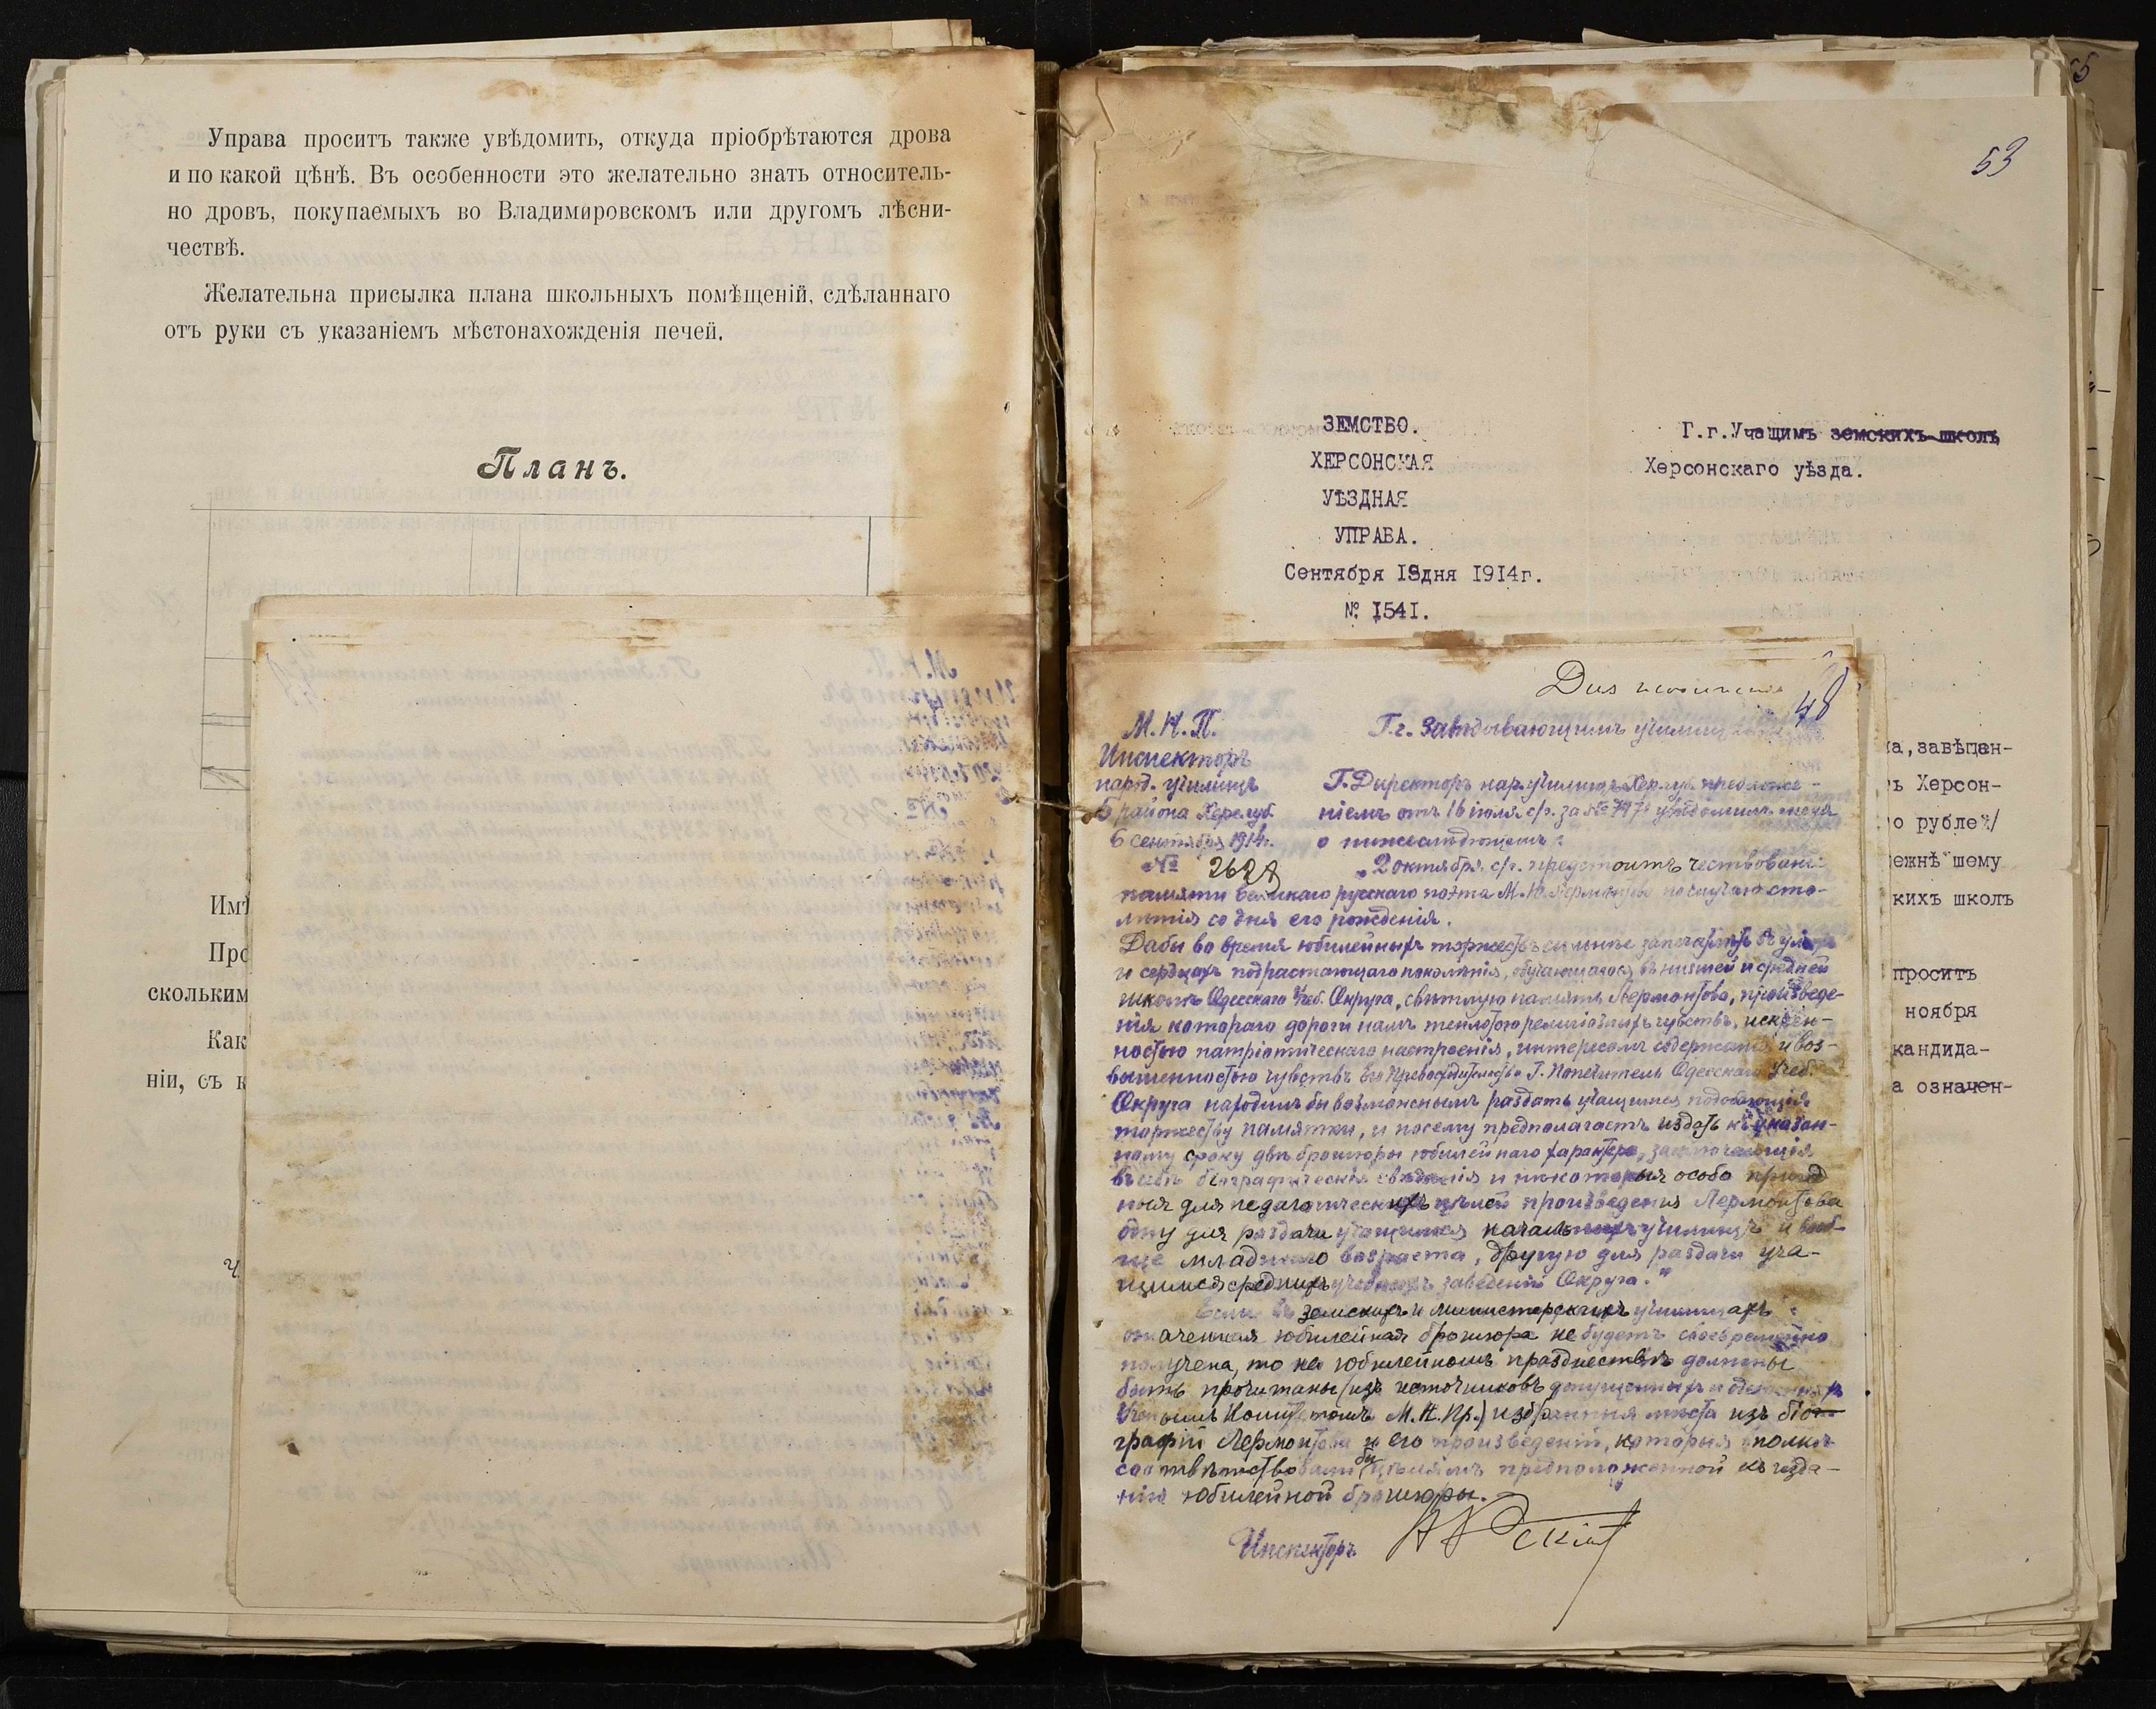 Управа проситъ также увѣдомить, откуда пріобрѣтаются дрова
и по какой цѣнѣ. Въ особенности это желательно знать относитель-
но дровъ, покупаемыхъ во Владимировскомъ или другомъ лѣсни-
чествѣ.
Желательна присылка плана школьныхъ помѣщеній, сдѣланнаго
отъ руки съ указаніемъ мѣстонахожденія печей.
Планъ.
Имѣ
Про
скольким
Как
ніи, съ к
53
ЗЕМСТВО.
ХЕРСОНСКАЯ
УѢЗДНАЯ
УПРАВА.
Сентября 18дня 1914г.
№ 1541.
Г.г.Учащимъ земскихъ школъ
Херсонскаго уѣзда.
а,завѣщан-
ъ Херсон-
о рублей/
ежнѣйшему
кихъ школъ
проситъ
ноября
кандида-
а означен-
48
М. Н. П.
Инспекторъ
народ. училищъ
5 района Херс.губ.
6 сентября 1914г.
№ 2628
Г.г. Завѣдывающимъ училищ
Г. Директоръ нар. училищъ Херс. губ. предложе-
ніемъ отъ 16 іюля с/г. за № 7971 увѣдомилъ меня
о нижеслѣдующемъ:
„2 октября с/г. предстоитъ чествованіе
памяти великаго русскаго поэта М. Ю. Лермонтова по случаю сто-
лѣтія со дня его рожденія.
Дабы во время юбилейныхъ торжествъ сильнѣе запечатлѣть въ умахъ
и сердцахъ подрастающаго поколѣнія, обучающагося въ низшей и средней
школѣ Одесскаго Учеб. Округа, свѣтлую память Лермонтова, произведе-
нія котораго дороги намъ теплотою религіозныхъ чувствъ, искрен-
ностью патріотическаго настроенія, интересомъ содержанія и воз-
вышенностью чувствъ Его Превосходительство Г. Попечитель Одесскаго Учеб.
Округа находилъ бы возможнымъ раздать учащимся подобающія
торжеству памятки, и посему предполагаетъ издать къ указан-
ному сроку двѣ брошюры юбилейнаго характера, заключающія
въ себѣ біографическія свѣдѣнія и нѣкоторыя особо пригод
ныя для педагогическихъ цѣлей произведенія Лермонтова
одну для раздачи учащимся начальныхъ училищъ и вооб-
ще младшаго возраста, другую для раздачи уча-
щимся среднихъ учебныхъ заведеній Округа."
Если въ земскихъ и министерскихъ училищахъ
означенная юбилейная брошюра не будетъ своевременно
получена, то на юбилейномъ празднествѣ должны
быть прочитаны (изъ источниковъ допущенныхъ и одобренныхъ
Ученымъ Комитетомъ М. Н. Пр.) избранныя мѣста изъ біо-
графіи Лермонтова и его произведеній, которыя вполнѣ
соотвѣтствовали бы цѣлямъ предположенной къ изда-
нію юбилейной брошюры.
Инспекторъ